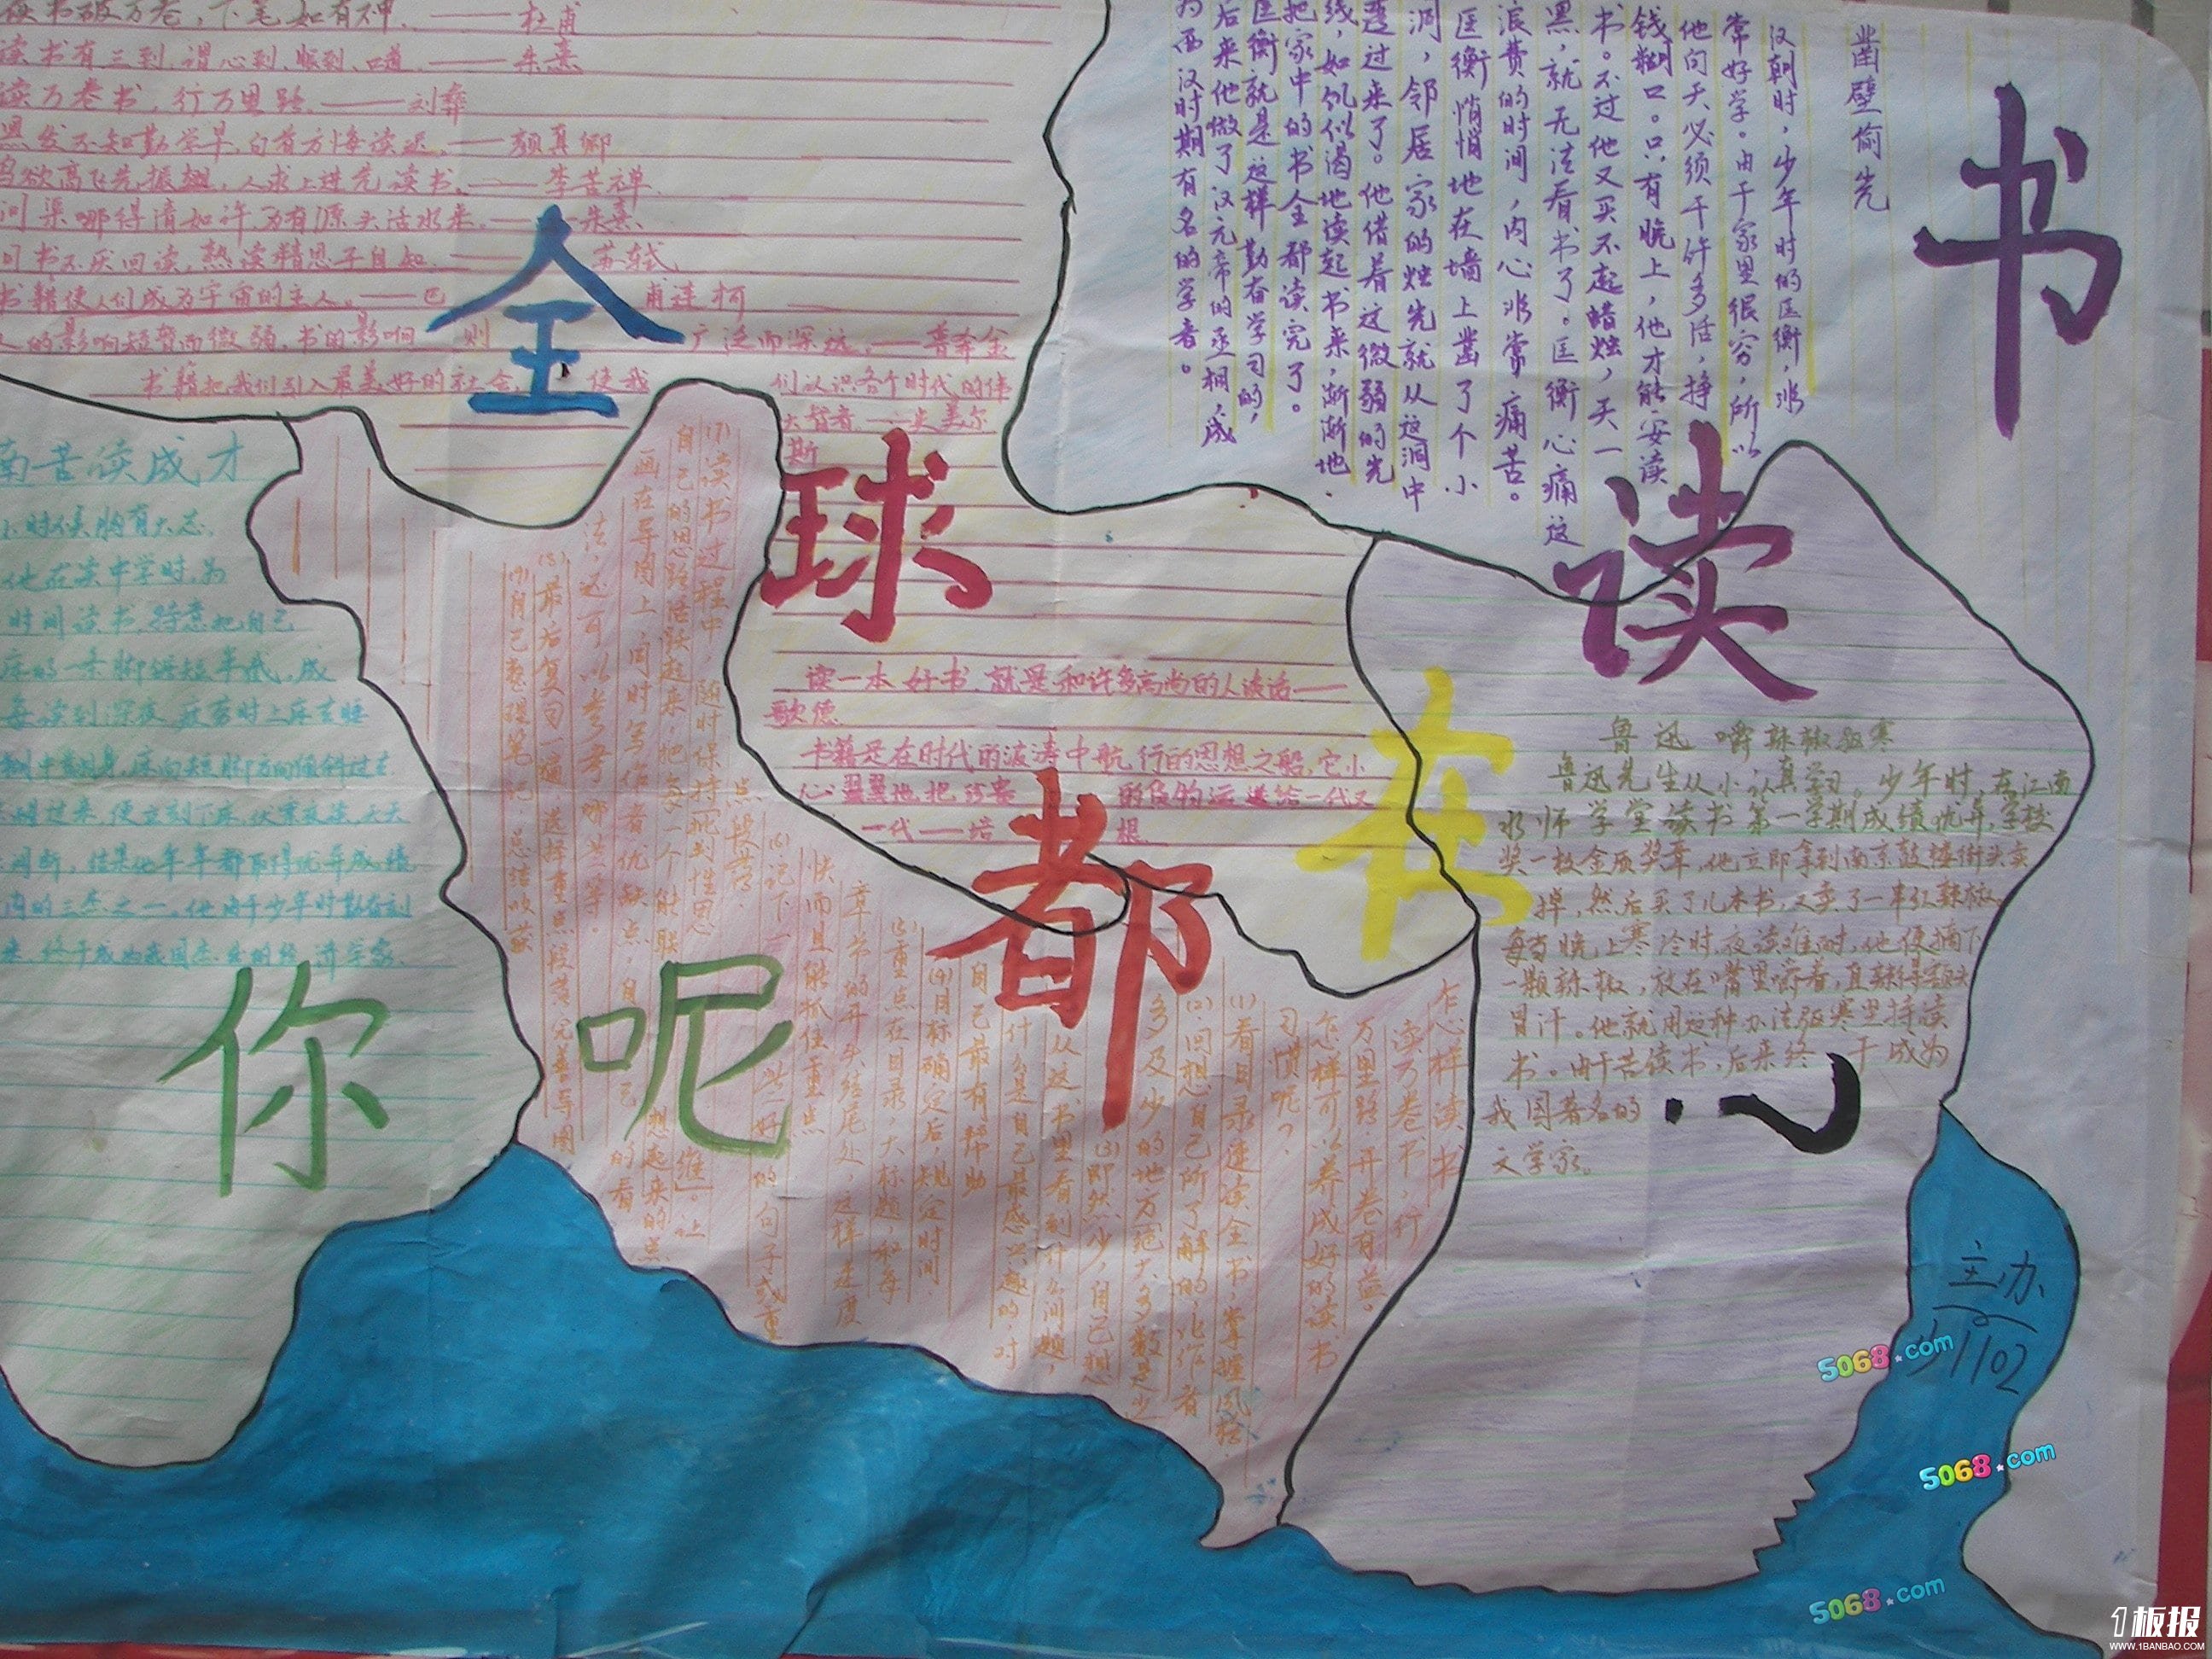 读书破万卷，下笔如有神．——杜甫
读书有三到，谓心到、眼到、口到．——朱熹
读万卷书，行万里路．——刘彝
黑发不知勤学早，白首方悔读迟．——颜真卿
鸟欲高飞先振翅，人求上进先读书．——李苦禅
问渠哪得清如许，为有源头活水来。——朱熹
旧书不厌回读，熟读精思子自知．——苏轼
书籍使人们成为宇宙的主人。——巴甫连柯
人的影响短暂而微弱，书的影响则广泛而深远。——普希金
书籍把我们引入最美好的社会，使我们认识各个时代的伟
大智者．——史美尔
斯
凿壁偷光
汉朝时，少年时的匡衡，非
常好学。由于家里很穷，所以
他白天必须干许多活，挣
钱糊口。只有晚上，他才能安读
书。不过他又买不起蜡烛，天一
黑，就无法看书了。匡衡心痛这
浪费的时间，内心非常痛苦。
匡衡悄悄地在墙上凿了个小
洞，邻居家的烛光就从这洞中
透过来了。他借着这微弱的光
线，如饥似渴地读起书来，渐渐地．
把家中的书全都读完了。
匡衡就是这样勤奋学习的，
后来他做了汉元帝的丞相，成
为西汉时期有名的学者。
全
球
都
在
读
书
你
呢
读一本好书，就是和许多高尚的人谈话——
歌德
书籍是在时代的波涛中航行的思想之船，它小
心翼翼地把珍贵的货物运送给一代又
一代——培根
鲁迅嚼辣椒驱寒
鲁迅先生从小认真学习。少年时，在江南
水师学堂读书第一学期成绩优异，学校
奖一枚金质奖章，他立即拿到南京鼓楼街头卖
掉，然后买了几本书，又卖了一串红辣椒。
每当晚上寒冷时，夜读难耐，他便摘下
一颗辣椒，放在嘴里嚼着，直辣得额头
冒汗。他就用这种办法驱寒坚持读
书。由于苦读书，后来终于成为
我国著名的
文学家。
南苦读成才
小时候胸有大志．
他在读中学时，为
时间读书，特意把自己
床的一条脚锯短半截，成
每读到深夜，疲劳时上床去睡
醒过来，便立刻下床，伏案夜读，天天
间断，结果他年年都取得优异成绩
内的三杰之一。他由于少年时勤奋刻
来，终于成为我国杰出的经济学家．
怎样读书
读万卷书，行
万里路．开卷有益。
怎样可以养成好的读书
习惯呢？
(1)看目录速读全书，掌握风格
(2)回想自己所了解的，比作者
多及少的地方，绝大多数是少
(3)即然少，自己想
从这书里看到什么问题，
什么是自己最感兴趣的对
自己最有帮助
(4)目标确定后，规定时间．
(5)重点在目录，大标题，和每
章书的开头结尾处，这样速度
快而且能抓住重点
(6)记下一些好的句子或重
点段落．
(7)读书过程中，随时保持「批判性思维」。让
自己的思路活跃起来，把每一个能联想起来的点
画在导图上，同时写作者优缺点．自己的看
法，还可以参考哪些书等。
(8)最后复习一遍，选择重点段落，完善导图
(9)自己整理笔记，总结收获
主办
5068.com
5068.com
5068.com
1板报
WWW.1BANBAO.COM